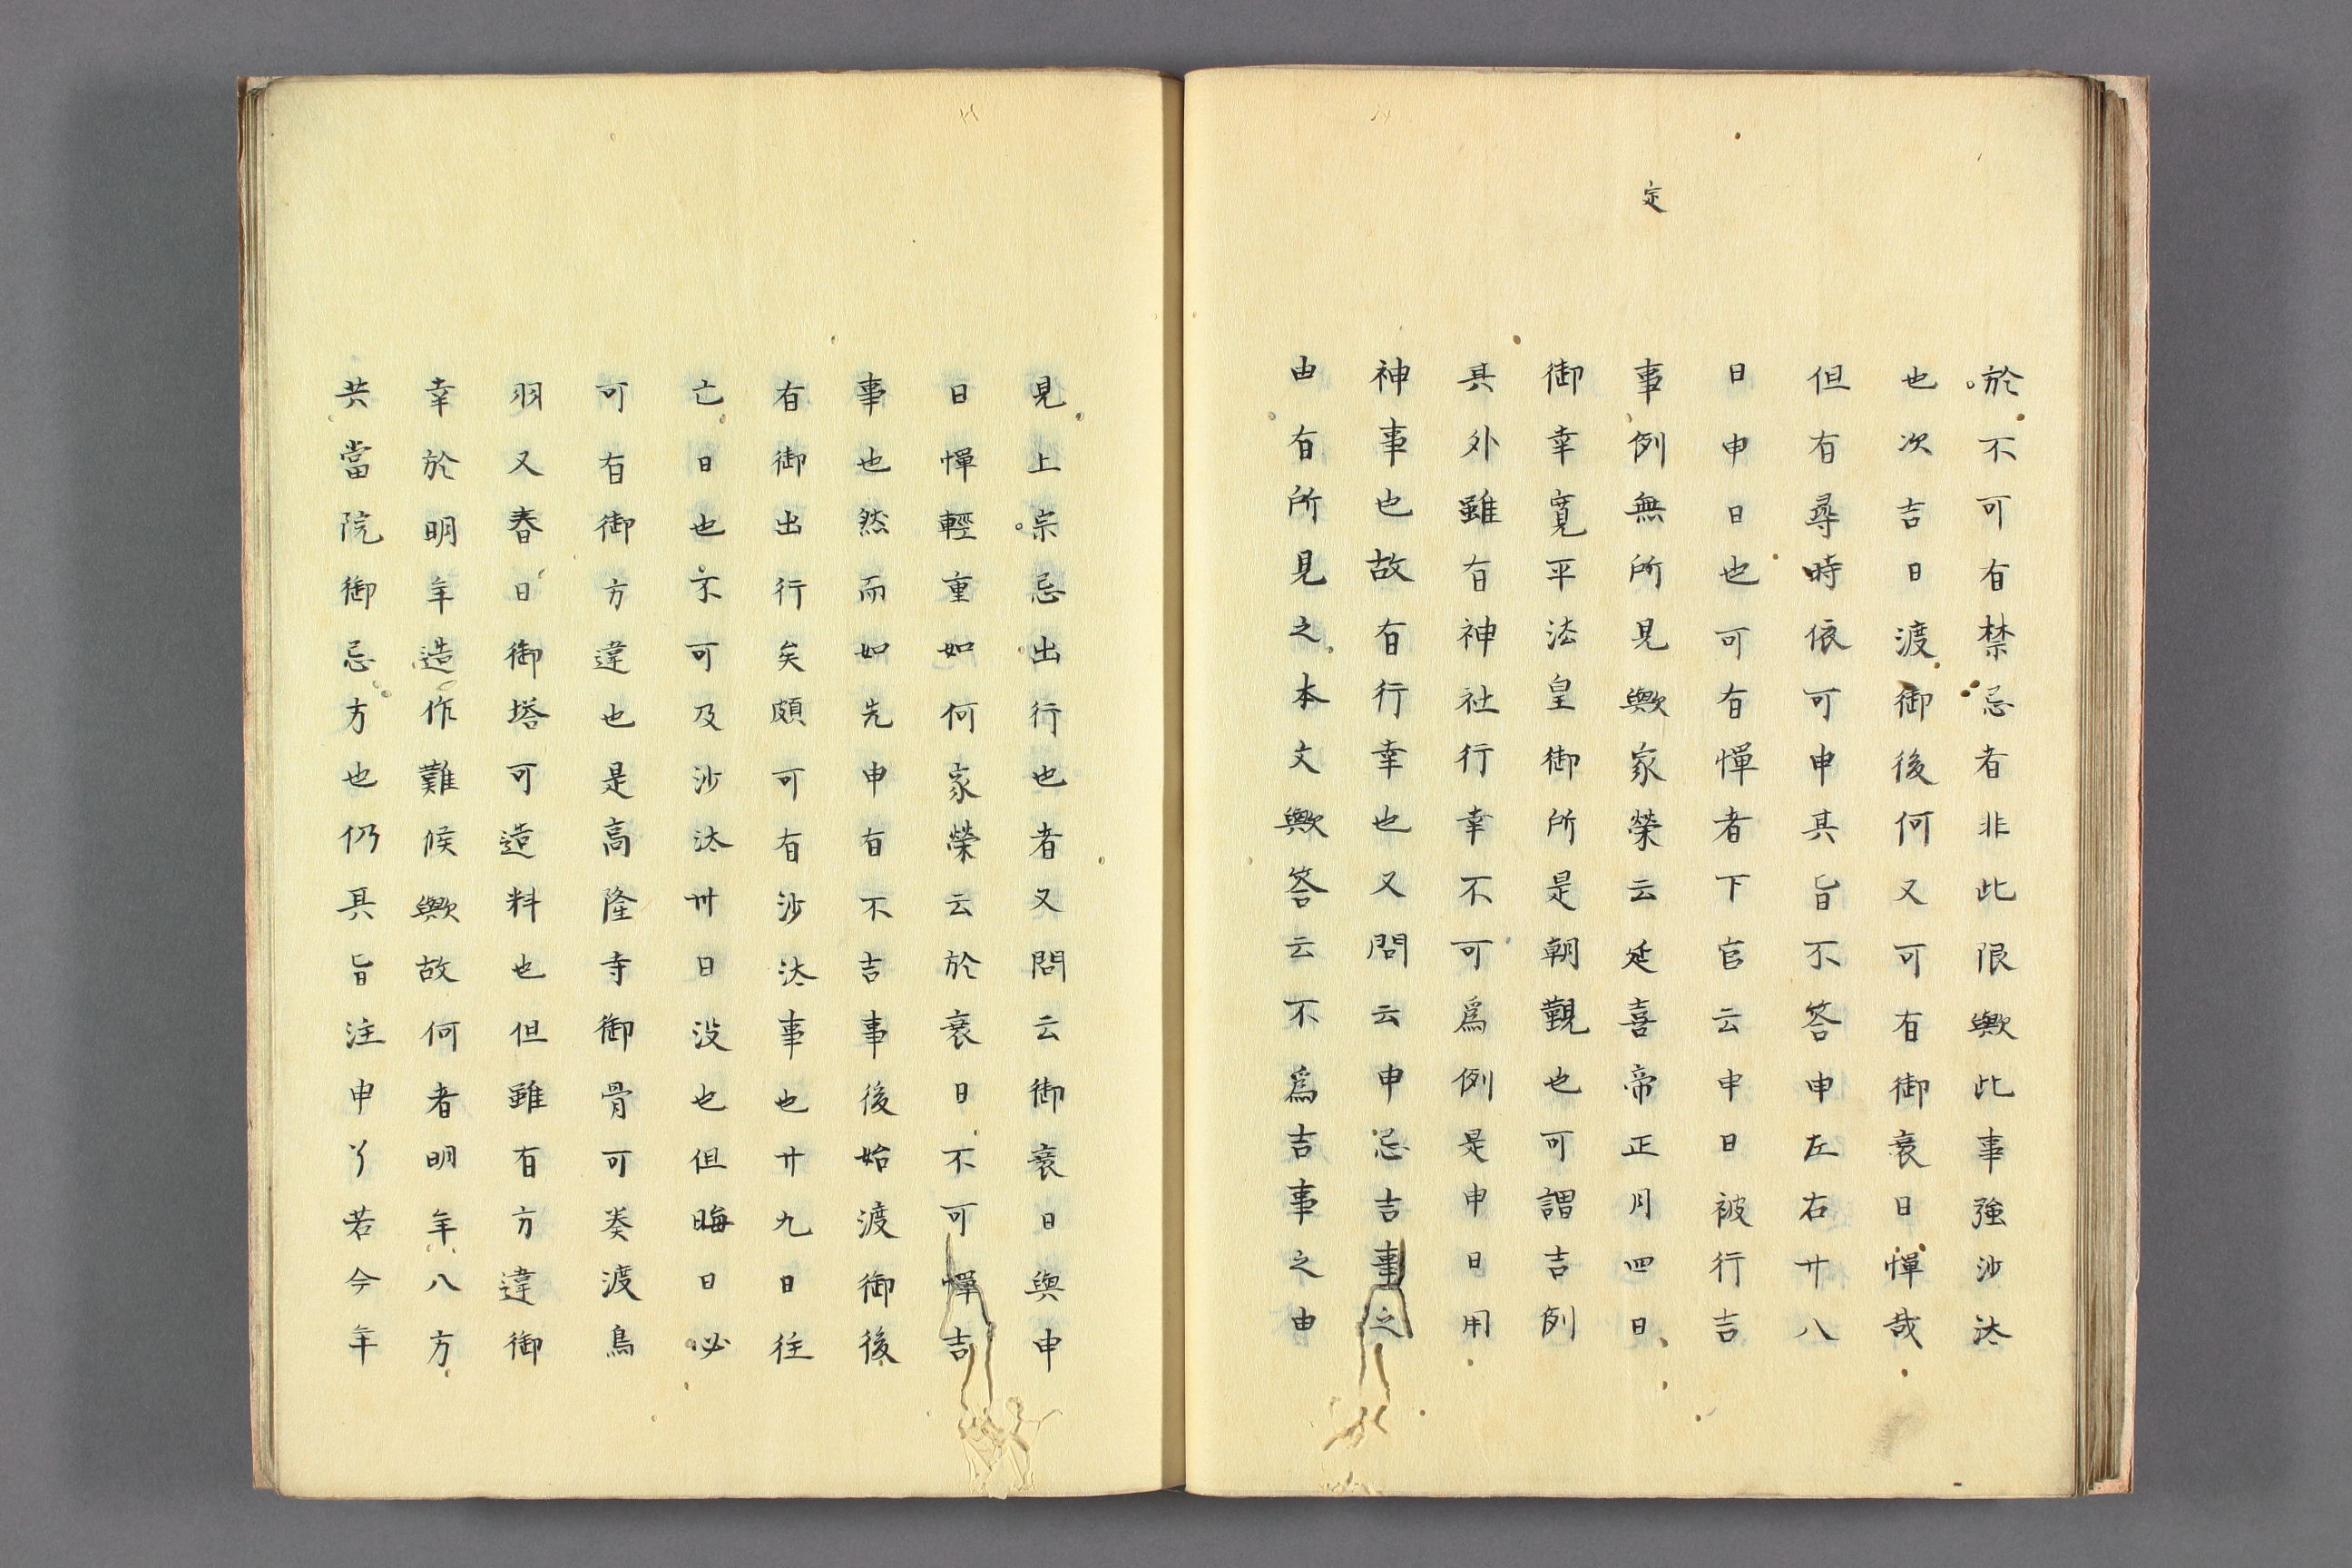 定
於不可有禁忌者非此限歟此事強沙汰
也次吉日渡御後何又可有御衰日憚哉
但有尋時依可申其旨不答申左右廿八
日申日也可有憚者下官云申日被行吉
事例無所見歟家榮云延喜帝正月四日
御幸寛平法皇御所是朝覲也可謂吉例
其外雖有神社行幸不可爲例是申日用
神事也故有行幸也又問云申忌吉事之
由有所見之本文歟答云不爲吉事之由
見上宗忌出行也者又問云御衰日與申
日憚輕重如何家榮云於衰日不可憚吉
事也然而如先申有不吉事後始渡御後
有御出行矣頗可有沙汰事也廿九日往
亡日也不可及沙汰卅日没也但晦日必
可有御方違也是高隆寺御骨可奏渡鳥
羽又春日御塔可造料也但雖有方違御
幸於明年造作難候歟故何者明年八方
共當院御忌方也仍具旨注申了若今年